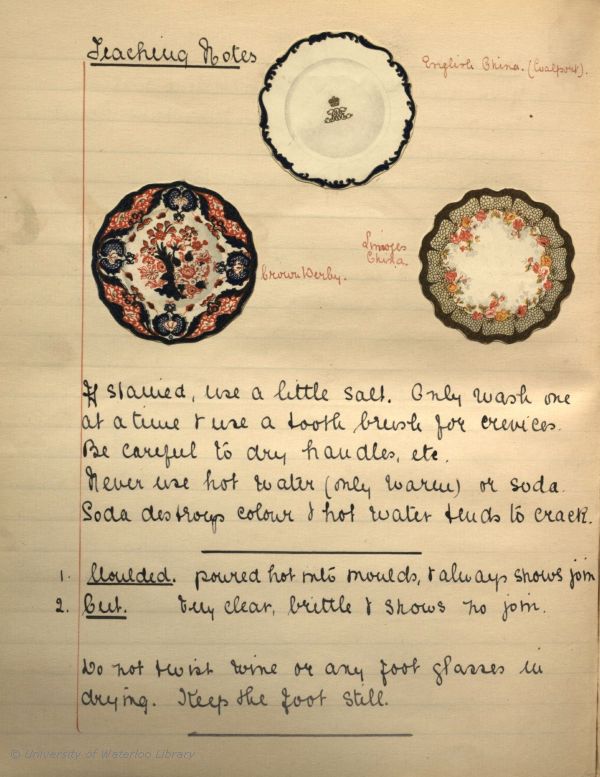 Teaching Notes
English China. (Coalport).
Crown Derby.
Limoges
China.
If stained, use a little salt. Only wash one
at a time & use a tooth brush for crevices.
Be careful to dry handles, etc.
Never use hot water (only warm) or soda.
Soda destroys colour & hot water tends to crack.
1. Moulded. poured hot into moulds, & always shows join
2. Cut. Very clear, brittle & shows no join.
Do not twist wine or any foot glasses in
drying. Keep the foot still.
© University of Waterloo Library